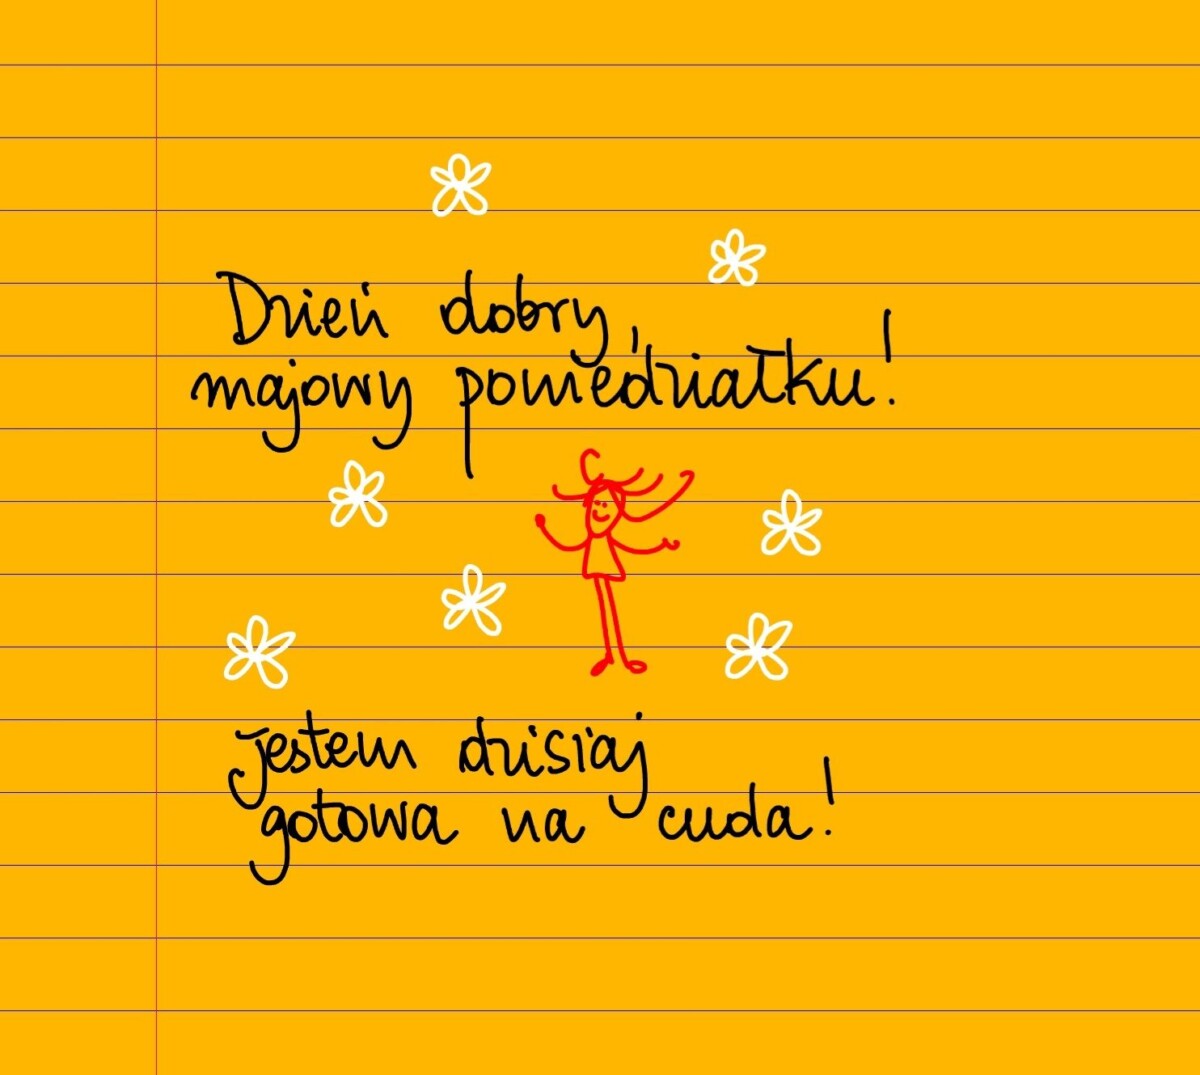 Dzień dobry,
majowy poniedziałku!
jestem dzisiaj
gotowa na cuda!